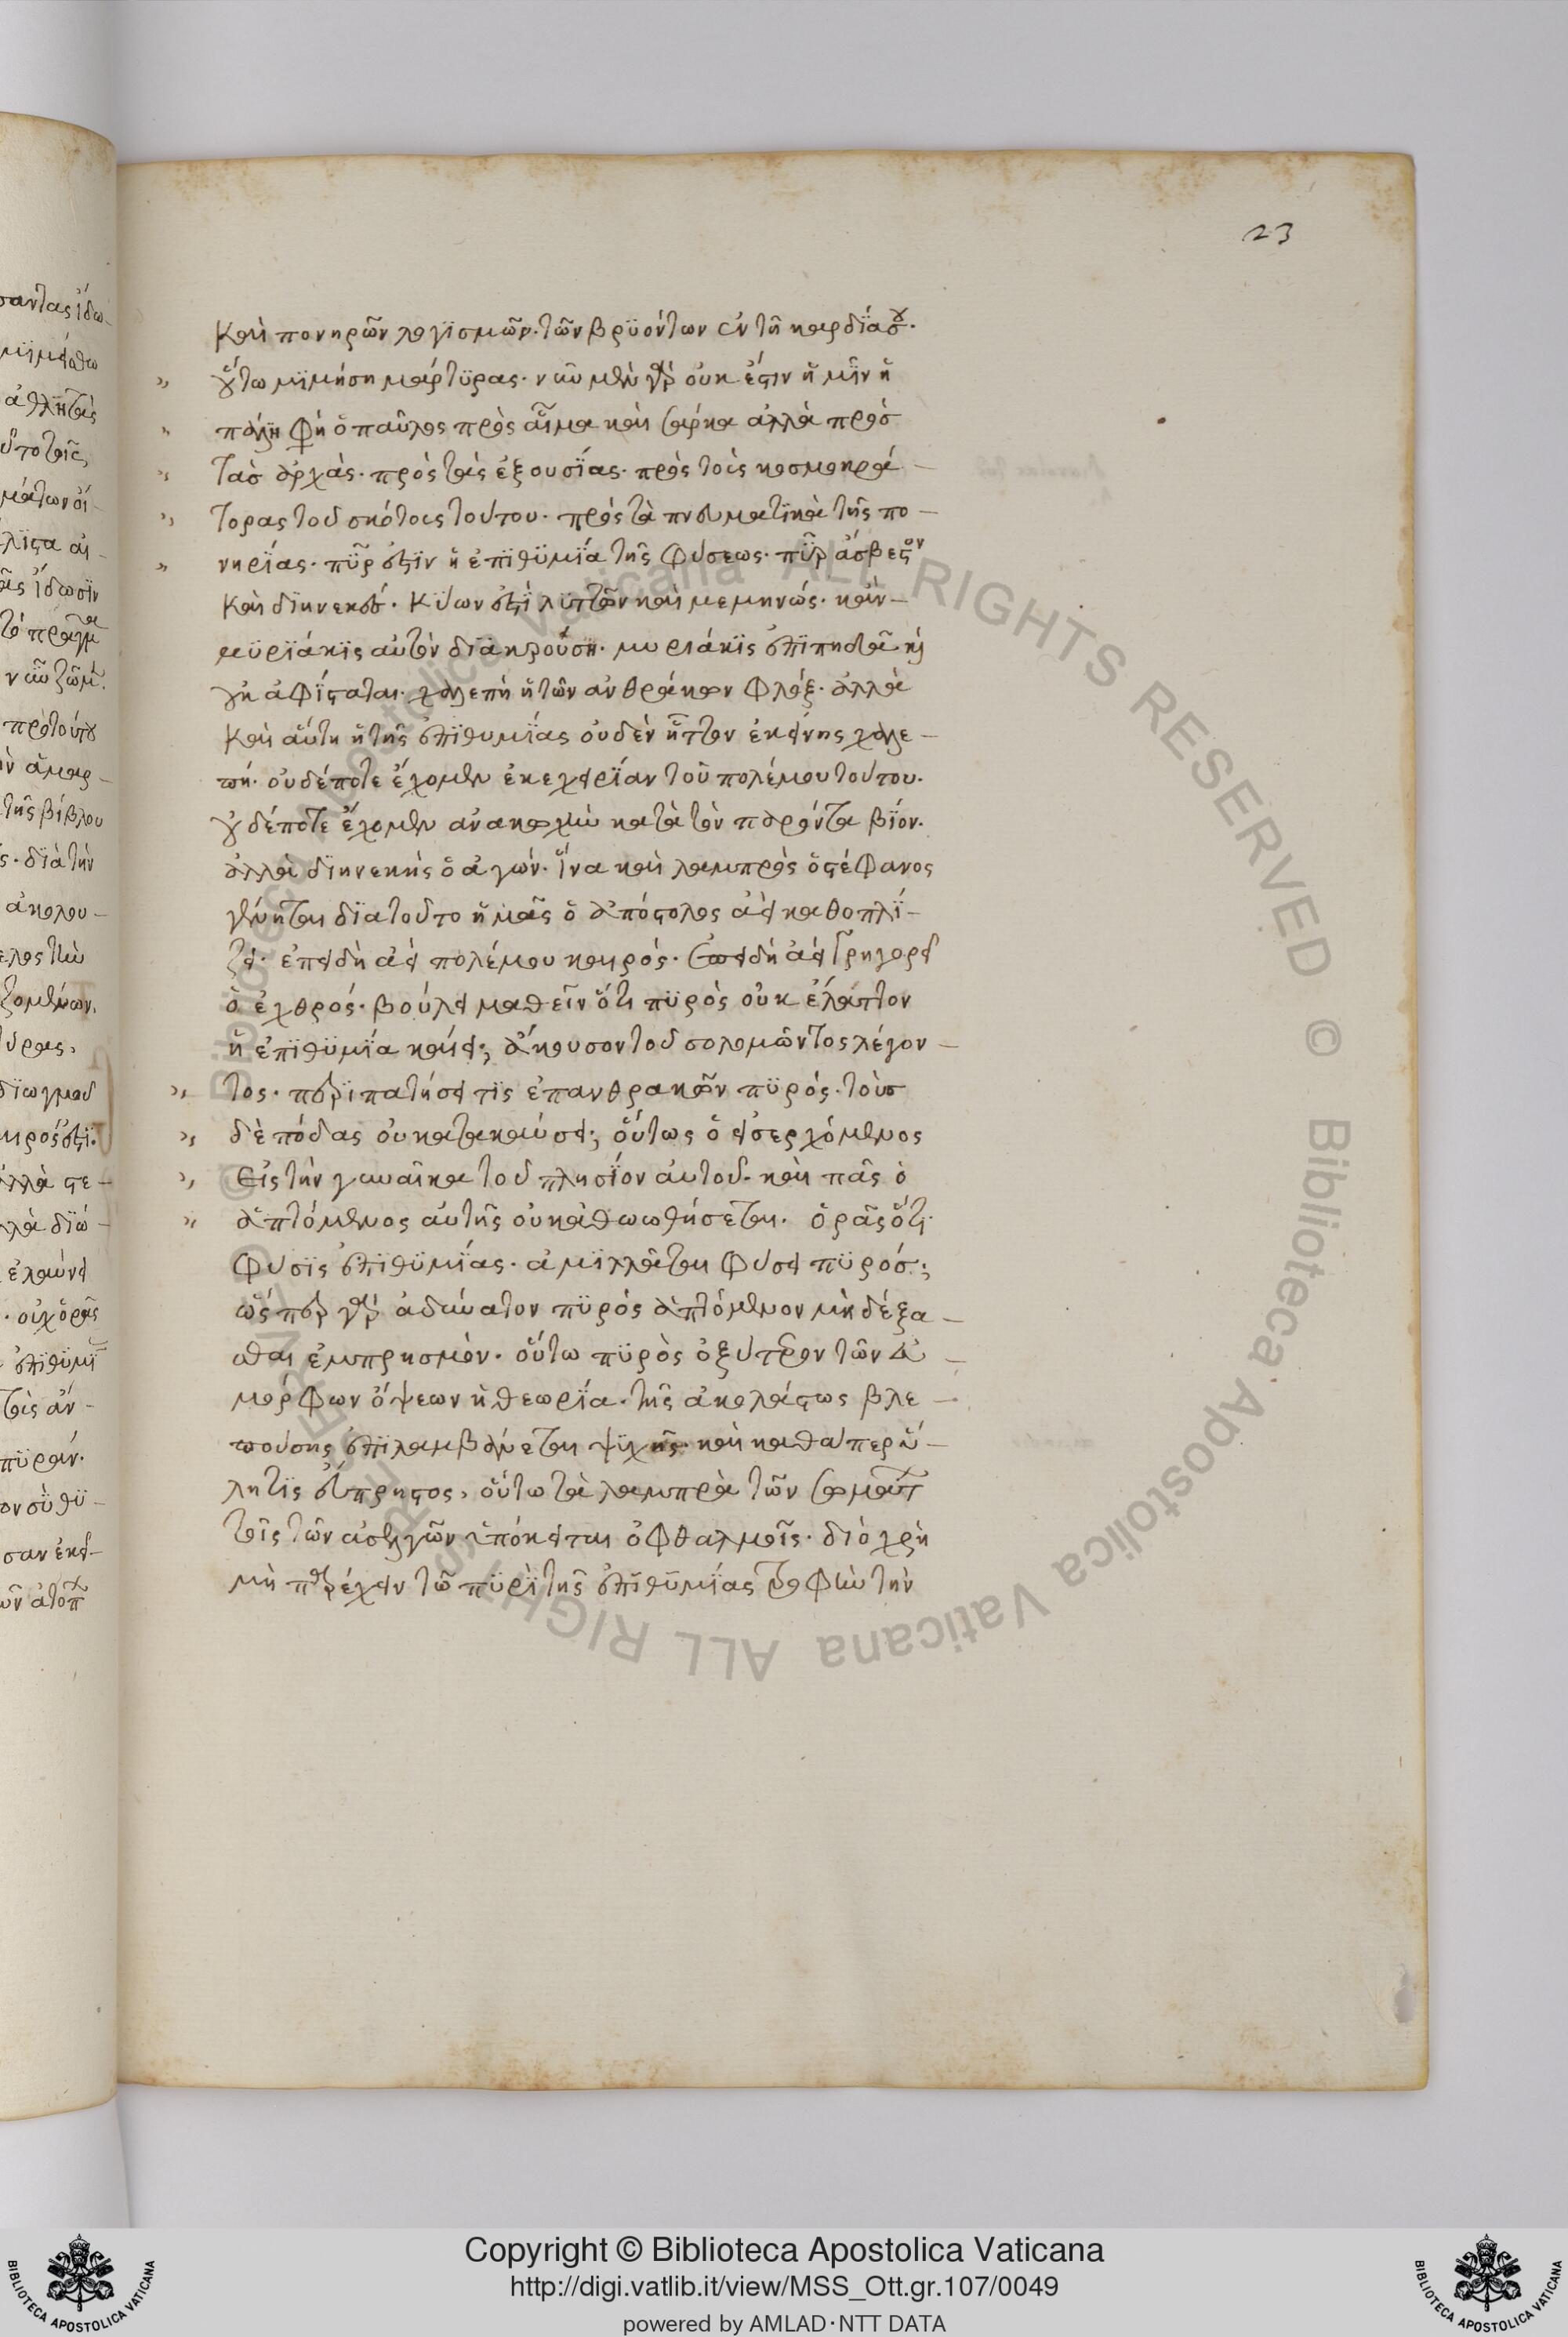 23
καὶ πονηρῶν λογϊσμῶν· τῶν βρϋόντων ἐν τῆ καρδίᾳ σου·
οὕτω μϊμήση μάρτϋρας· νῦν μὲν γὰρ οὐκ ἔστιν ἡ μῖν ἡ
πάλη φη ὁ παῦλος πρὸς αἷμα καὶ σάρκα ἀλλὰ πρὸσ
τὰσ ἀρχὰς· πρὸς τὰς ἐξουσΐας· πρὸς τοὺς κοσμοκρά
τορας τοῦ σκότους τούτου· πρὸς τὰ πνευματϊκὰ τῆς πο
νηρΐας· πῦρ ἐστϊν ἡ ἐπϊθϋμΐα τῆς φύσεως· πῦρ ἄσβεστον
καὶ δϊηνεκές· κΰων ἐστὶ λϋττῶν καὶ μεμηνώς· κἂν
μϋρϊάκϊς αὐτὸν δϊακρούση· μυριάκϊς ἐπϊπηδᾶ κὴ
γὴ ἀφΐσταται· χαλεπὴ ἡ τῶν ἀνθράκων φλόξ· ἀλλὰ
καὶ αὕτη ἡ τῆς ἐπϊθυμΐας οὐδὲν ἧττον ἐκείνης χαλε
πή· οὐδέποτε ἔχομεν ἐκεχειρΐαν τοῦ πολέμου τούτου·
οὐδέποτε ἔχομεν ἀνακωχὴν κατὰ τὸν παρόντα βΐον·
ἀλλὰ δϊηνεκὴς ὁ ἀγών· ἵνα καὶ λαμπρὸς ὁ στέφανος
γένηται δϊατοῦτο ἡμᾶς ὁ ἀπόστολος ἀεὶ καθοπλΐ
ζει· ἐπειδὴ ἀεὶ πολέμου καιρός· ἐπειδὴ ἀεὶ γρηγορεῖ
ὁ ἐχθρός· βούλει μαθεῖν ὅτι πϋρὸς οὐκ ἔλαττον
ἡ ἐπϊθϋμΐα καίει; ἄκουσον τοῦ σολομῶντος λέγον
τος· περϊπατήσει τϊς ἐπανθρακῶν πϋρός· τοὺσ
δὲ πόδας οὐ κατακαύσει; οὕτως ὁ εἰσερχόμενος
Εἰς τὴν γυναῖκα τοῦ πλησΐον αὐτοῦ· καὶ πᾶς ὁ
ἁπτόμενος αὐτῆς οὐκ ἀθωωθήσεται· ὁρᾶς ὅτι
φυσϊς ἐπϊθϋμΐας· ἁμϊλλᾶται φυσει πϋρός;
ὥσπερ γὰρ ἀδύνατον πϋρὸς ἁπτόμενον μὴ δέξα
σθαι ἐμπρησμόν· οὕτω πϋρὸς ὀξύτερον τῶν εὐ
μόρφων ὄψεων ἡ θεωρΐα· τῆς ἀκολάστως βλε
πούσης ἐπϊλαμβάνεται ψϋχῆς· καὶ καθάπερ ὕ
λη τϊς εὔπρηστος, οὕτω τὰ λαμπρὰ τῶν σωμάτ
τοῖς τῶν ἀσελγῶν ὑπόκειται ὀφθαλμοῖς· διὸ χρὴ
μὴ παρέχειν τῶ πϋρὶ τῆς ἐπϊθϋμΐας τροφὴν τὴν
Copyright © Biblioteca Apostolica Vaticana
http://digi.vatlib.it/view/MSS_Ott.gr.107/0049
powered by AMLAD·NTT DATA